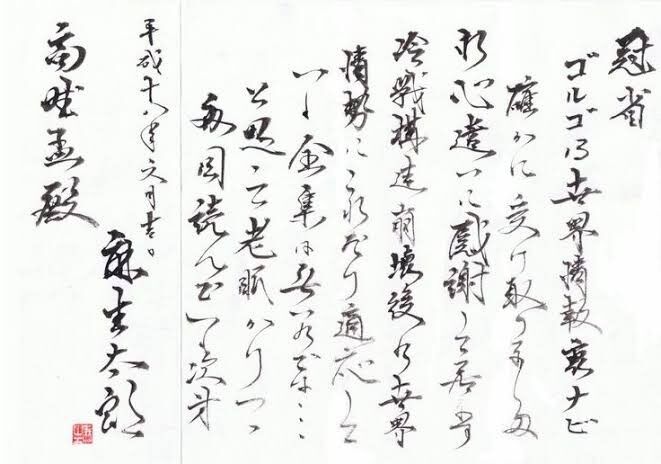 冠省
ゴルゴ13世界情報裏ナビ
確かに受け取りました
お心遣いに感謝して居ます
冷戦構造崩壊後の世界
情勢にこれだけ適応して
いく全集は無いのでは…
と思って老眼かけつつ
毎回読んでる次第
平成十八年六月吉日
麻生太郎
殿